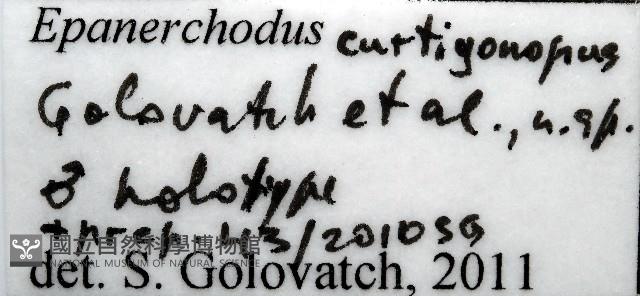 Epanerchodus curtigonopus
Golovatch et al., n. sp.
♂ holotype
/2010 SG
國立自然科學博物館
NATIONAL MUSEUM OF NATURAL SCIENCE
det. S. Golovatch, 2011